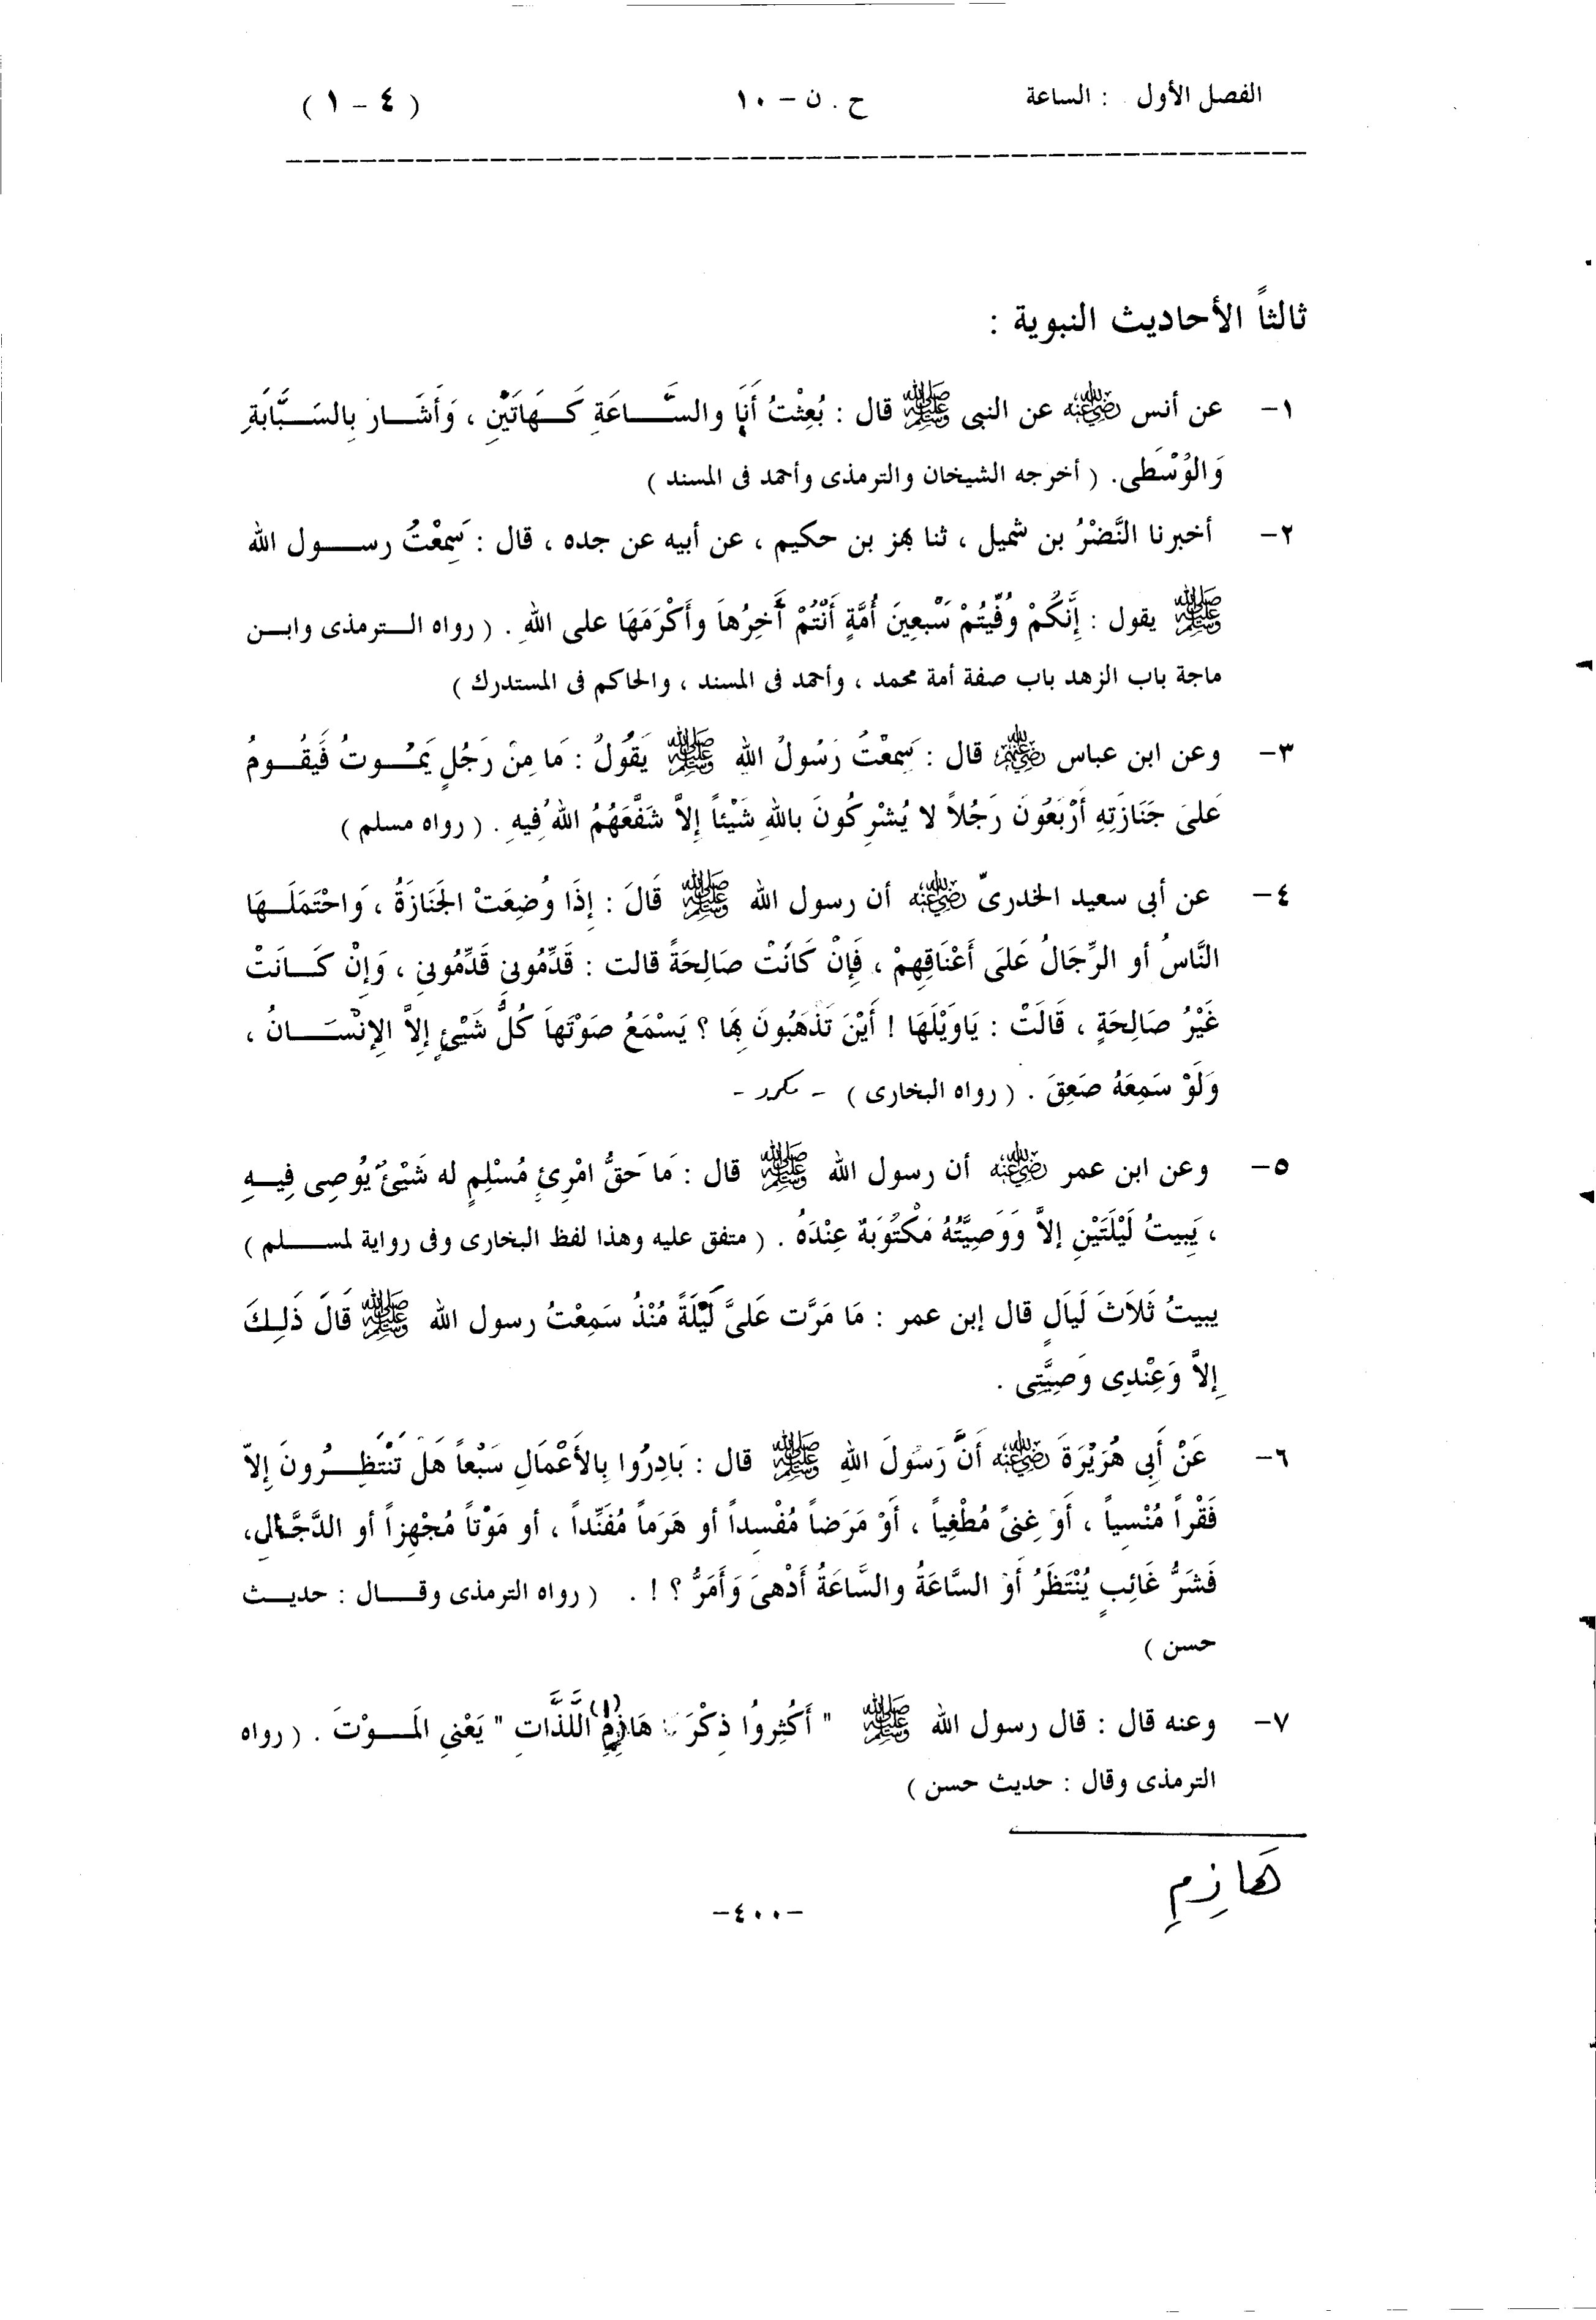 الفصل الأول : الساعة ح . ن – ١٠ ( ٤ – ١ )
ثالثاً الأحاديث النبوية :
١– عن أنس رضي الله عنه عن النبى ﷺ قال : بُعِثْتُ أَنَا والسَّـــاعَةِ كَـهَاتَيْنِ ، وَأَشَـــارَ بِالسَـبَّابَةِ
وَالوُسْطَى. ( أخرجه الشيخان والترمذى وأحمد فى المسند )
٢– أخبرنا النَّضْرُ بن شميل ، ثنا بهز بن حكيم ، عن أبيه عن جده ، قال : سَمِعْتُ رســـول الله
ﷺ يقول : إِنَّكُمْ وُفِّيتُمْ سَبْعِينَ أُمَّةٍ أَنْتُمْ أَخِرُهاَ وأَكْرَمَهَا على اللهِ . ( رواه الـترمذى وابـن
ماجة باب الزهد باب صفة أمة محمد ، وأحمد فى المسند ، والحاكم فى المستدرك )
٣– وعن ابن عباس رضي الله عنهم قال : سَمِعْتُ رَسُولُ اللهِ ﷺ يَقُولُ : مَا مِنْ رَجُلٍ يَمُـوتُ فَيَقُـومُ
عَلىَ جَنَازَتِهِ أَرْبَعُونَ رَجُلاً لا يُشْرِكُونَ باللهِ شَيْئاً إلاَّ شَفَّعَهُمُ اللهُ فِيهِ . ( رواه مسلم )
٤– عن أبى سعيد الخدرىّ رضي الله عنه أن رسول الله ﷺ قَالَ : إذَا وُضِعَتْ الجَنَازَةُ ، وَاحْتَمَلَـهَا
النَّاسُ أو الرِّجَالُ عَلَى أَعْنَاقِهِمْ ، فَإِنْ كَانَتْ صَالِحَةً قالت : قَدِّمُونِى قَدِّمُونِى ، وَإنْ كَـانَتْ
غَيْرُ صَالِحَةٍ ، قَالَتْ : يَاوَيْلَهَا ! أَيْنَ تَذْهَبُونَ بِهَا ؟ يَسْمَعُ صَوْتَهاَ كُلُّ شَيْئٍ إلاَّ الإنْسَـانُ ،
وَلَوْ سَمِعَهُ صَعِقَ . ( رواه البخارى ) - مكرر -
٥– وعن ابن عمر رضي الله عنه أن رسول الله ﷺ قال : مَا حَقُّ امْرِئٍ مُسْلِمٍ له شَيْئٌ يُوصِى فِيـهِ
، يَبِيتُ لَيْلَتَيْنِ إلاَّ وَوَصِيَّتُهُ مَكْتُوبَةٌ عِنْدَهُ . ( متفق عليه وهذا لفظ البخارى وفى رواية لمســلم )
يبيتُ ثَلاَثَ لَيَالٍ قال إبن عمر : مَا مَرَّت عَلىَّ لَيْلَةً مُنْذُ سَمِعْتُ رسول الله ﷺ قَالَ ذَلِـكَ
إلاَّ وَعِنْدِى وَصِيَّتِى .
٦– عَنْ أَبِى هُرَيْرَةَ رضي الله عنه أَنَّ رَسُولَ اللهِ ﷺ قال : بَادِرُوا بِالأَعْمَالِ سَبْعاً هَلْ تَنْتَظِـرُونَ إلاّ
فَقْراً مُنْسِياً ، أَوَ غِنىً مُطْغِياً ، أَوْ مَرَضاً مُفْسِداً أو هَرَماً مُفَنِّداً ، أو مَوْتاً مُجْهِزاً أو الدَّجَّالِ،
فَشَرُّ غَائِبٍ يُنْتَظَرُ أَوْ السَّاعَةُ والسَّاعَةُ أَدْهىَ وَأَمَرُّ ؟ ! . ( رواه الترمذى وقـــال : حديـث
حسن )
٧– وعنه قال : قال رسول الله ﷺ " أَكْثِروُا ذِكْرَ هَازِمِ(١) اللَّذَّاتِ " يَعْنِى المَـوْتَ . ( رواه
الترمذى وقال : حديث حسن )
هَازِمِ
–٤٠٠–